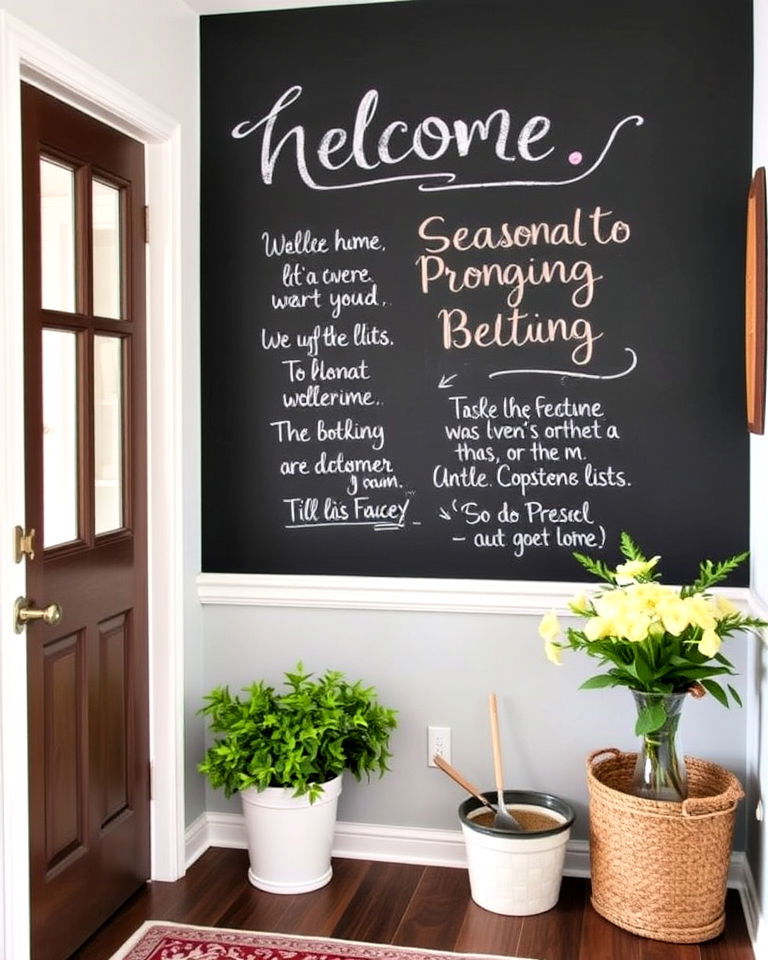 welcome.
Wellee hume,
lit'a cvere
wart youd,.
We uff the llits.
To llonat
wollerime..
The botking
are dctomer
g aum.
Till lis Faucey
Seasonal to
Pronging
Beltiing
Taske lhe fectune
was lven's orthet a
thas, or the m.
Untle. Copstene lists.
"So do Presel
– aut goet lome)